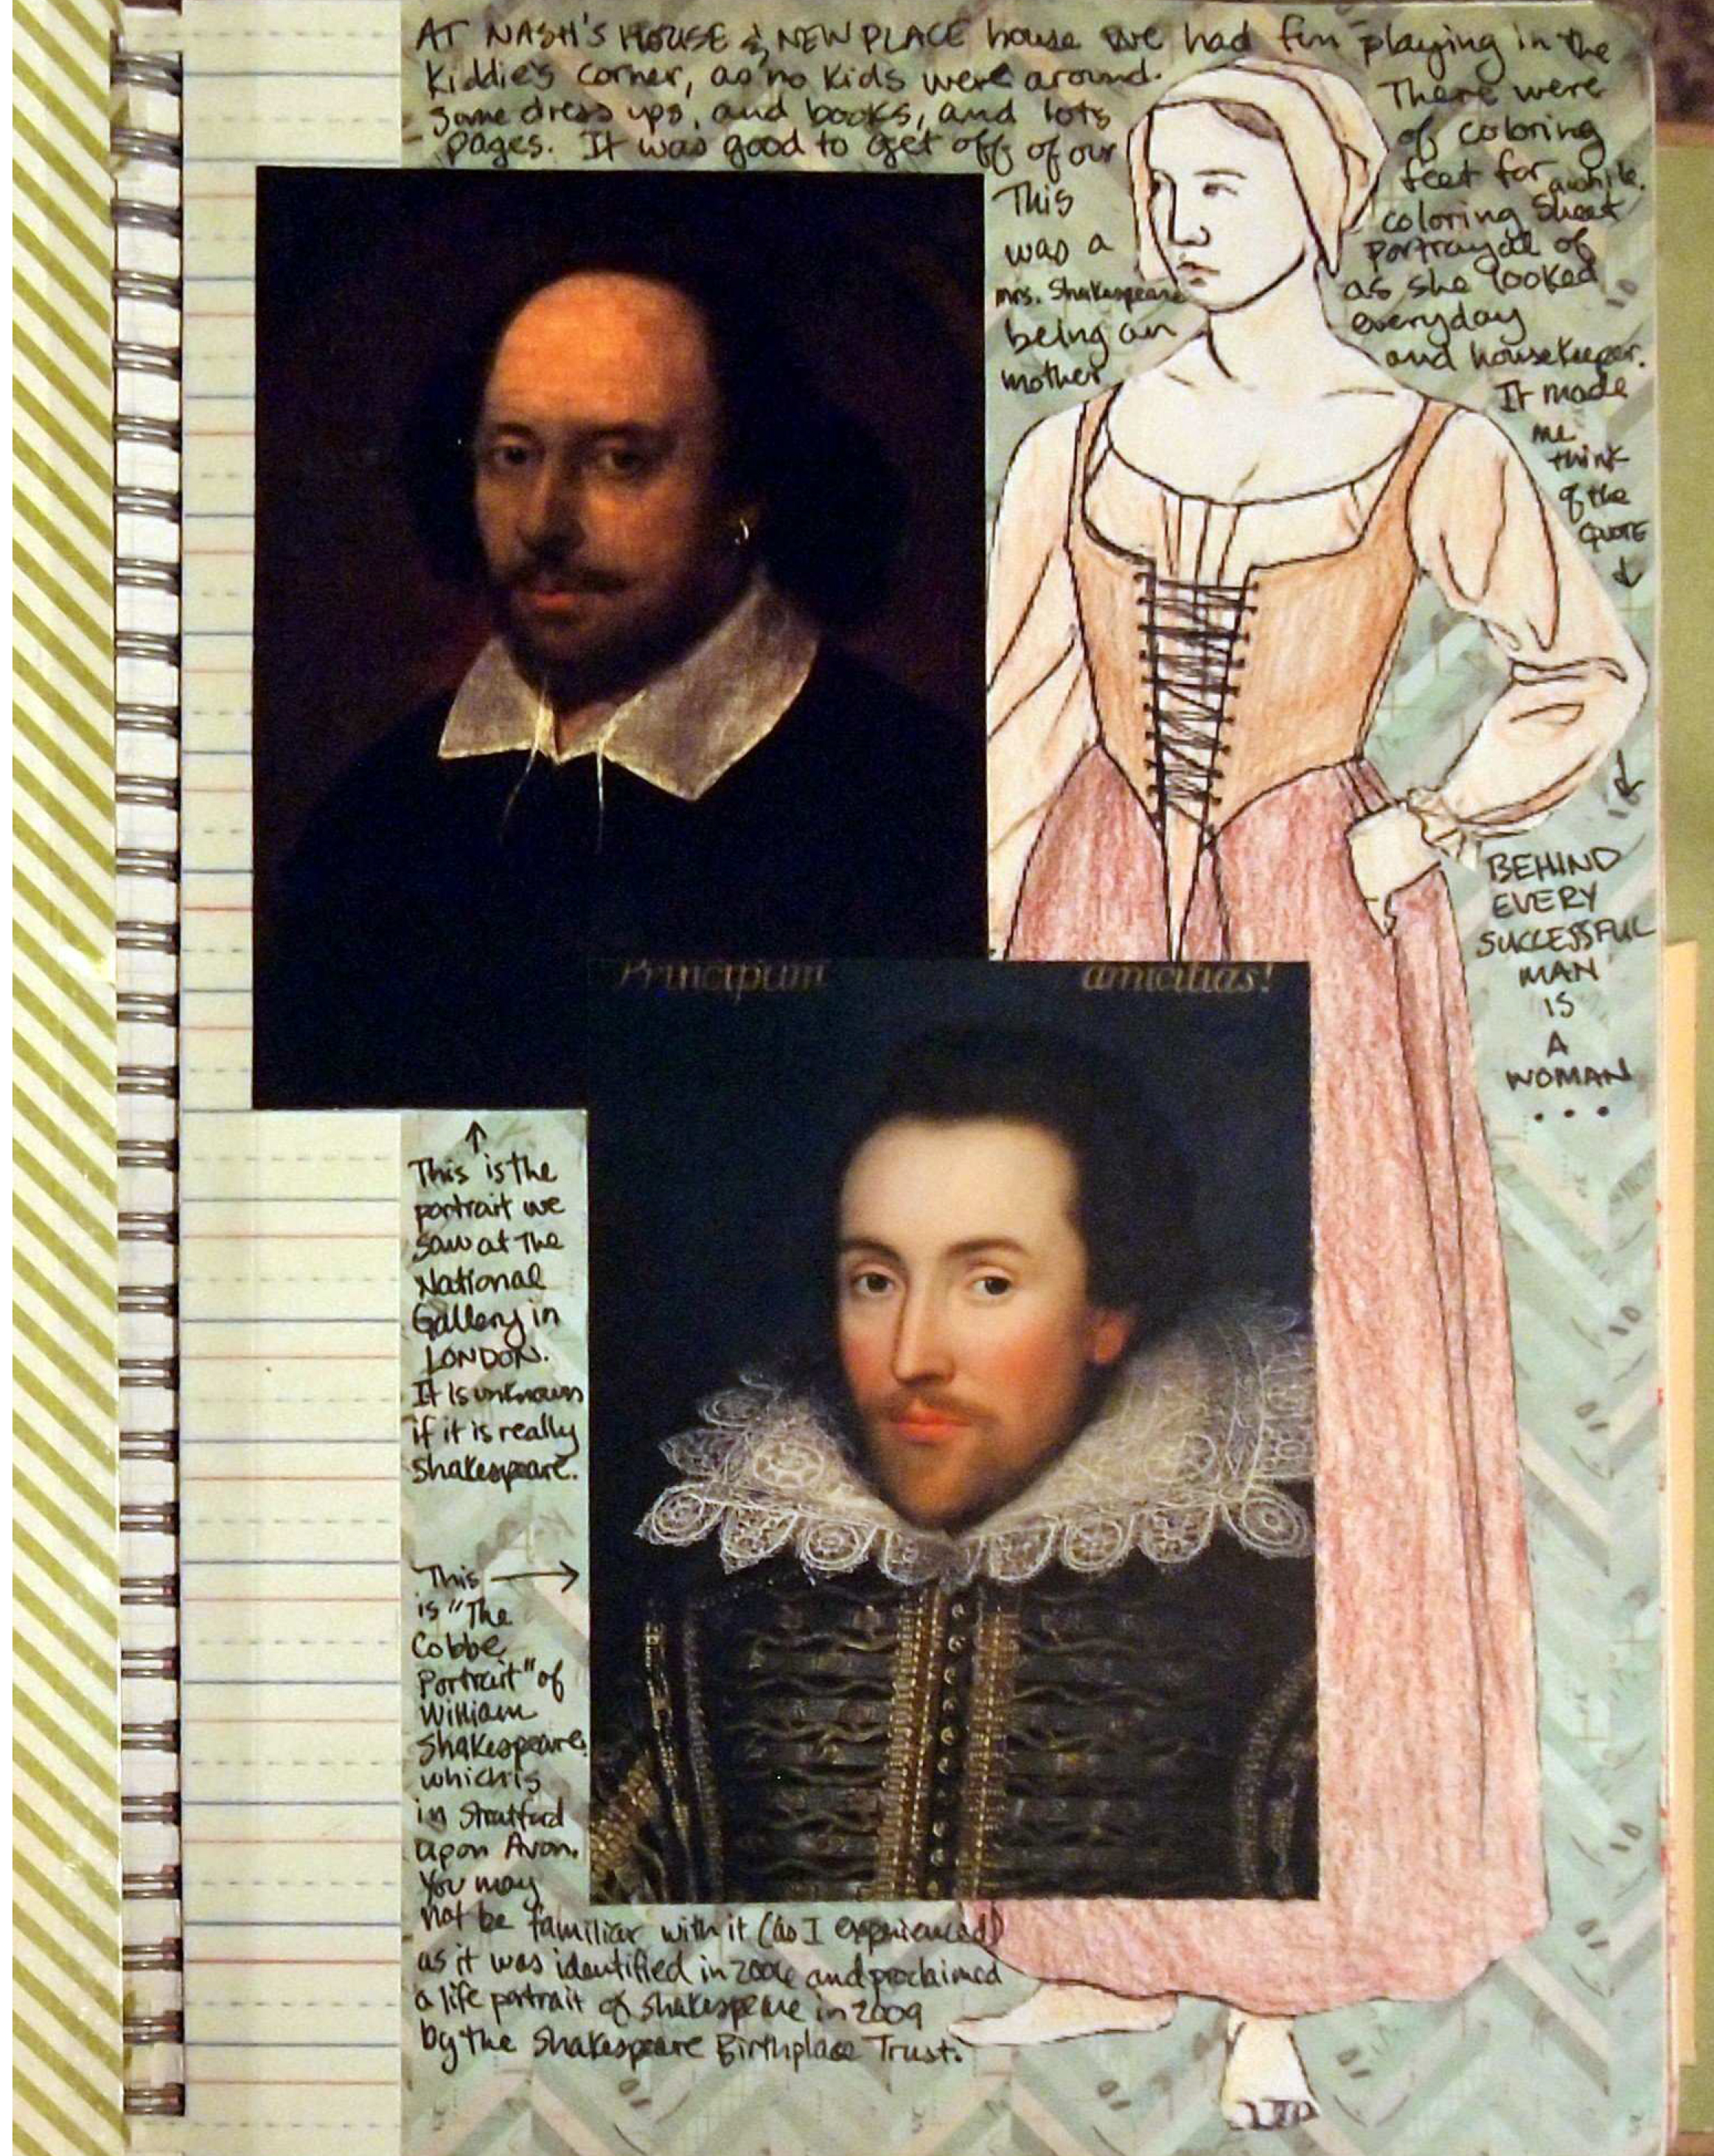 AT NASH'S HOUSE & NEW PLACE house we had fun playing in the
Kiddie's corner, as no kids were around. There were
some dress ups, and books, and lots of coloring
pages. It was good to get off of our feet for awhile.
This coloring sheet
was a portrayal of
Mrs. Shakespeare as she looked
being an everyday
mother and housekeeper.
It made
me
think
of the
QUOTE
BEHIND
EVERY
SUCCESSFUL
MAN
IS
A
WOMAN
...
Principum amicitias!
This is the
portrait we
saw at the
National
Gallery in
LONDON.
It is unknown
if it is really
Shakespeare.
This
is "The
Cobbe
Portrait" of
William
Shakespeare,
which is
in Stratford
upon Avon.
You may
not be familiar with it (as I experienced)
as it was identified in 2006 and proclaimed
a life portrait of Shakespeare in 2009
by the Shakespeare Birthplace Trust.